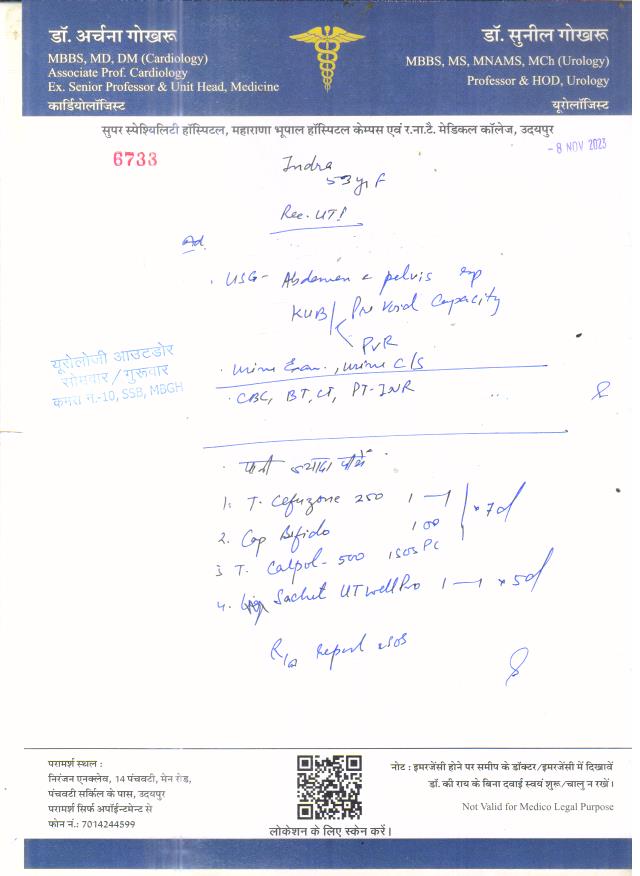 डॉ. अर्चना गोखरू
MBBS, MD, DM (Cardiology)
Associate Prof. Cardiology
Ex. Senior Professor & Unit Head, Medicine
कार्डियोलॉजिस्ट
डॉ. सुनील गोखरू
MBBS, MS, MNAMS, MCh (Urology)
Professor & HOD, Urology
यूरोलॉजिस्ट
सुपर स्पेश्यिलिटी हॉस्पिटल, महाराणा भूपाल हॉस्पिटल केम्पस एवं र.ना.टै. मेडिकल कॉलेज, उदयपुर
6733
- 8 NOV 2023
Indra
53 yr F
Rec. UTI
Ad.
USG - Abdomen & pelvis
KUB Pre Void Capacity
PVR
Urine Exam., urine C/S
CBC, BT, CT, PT-INR
यूरोलोजी आउटडोर
सोमवार / गुरूवार
कमरा न.-10, SSB, MBGH
पानी ज्यादा पीये
1. T. Cefuzone 250 1—1
2. Cap Bifido 100 × 7d
3 T. Calpol-500 1SOS PC
4. Sachet UTwellPro 1—1 × 5d
R/A Report SOS
परामर्श स्थल :
निरंजन एनक्लेव, 14 पंचवटी, मेन रोड,
पंचवटी सर्किल के पास, उदयपुर
परामर्श सिर्फ अपॉईन्टमेन्ट से
फोन नं.: 7014244599
लोकेशन के लिए स्केन करें।
नोट : इमरजेंसी होने पर समीप के डॉक्टर/इमरजेंसी में दिखावें
डॉ. की राय के बिना दवाई स्वयं शुरू/चालु न रखें।
Not Valid for Medico Legal Purpose